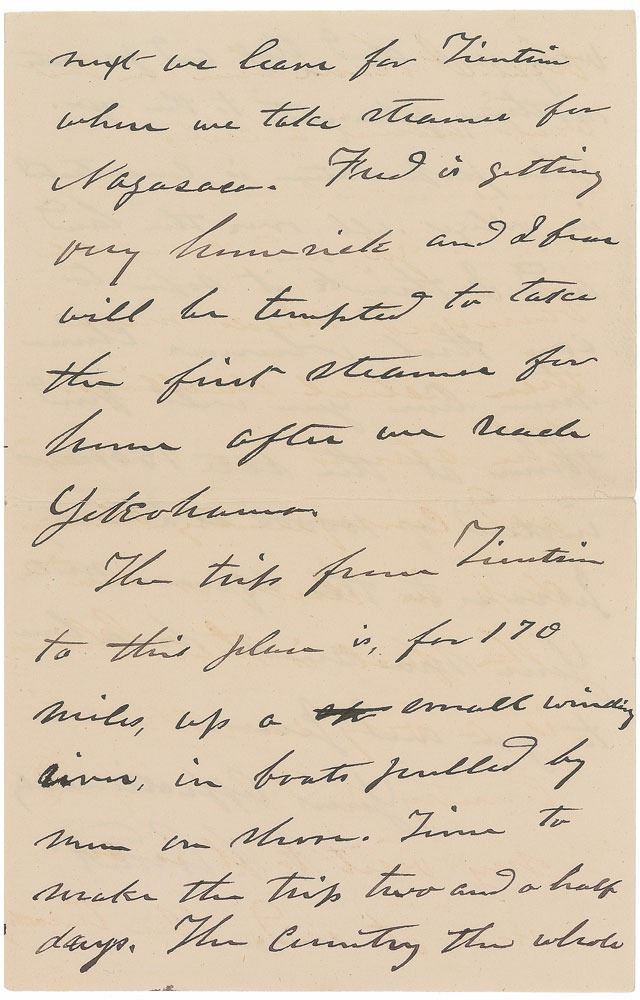 next we leave for Tientsin
where we take steamer for
Nagasaca. Fred is getting
very homesick and I fear
will be tempted to take
the first steamer for
home after we reach
Yokohama.
The trip from Tientsin
to this place is, for 170
miles, up a small winding
river, in boats pulled by
men on shore. Time to
make the trip two and a half
days. The Country the whole